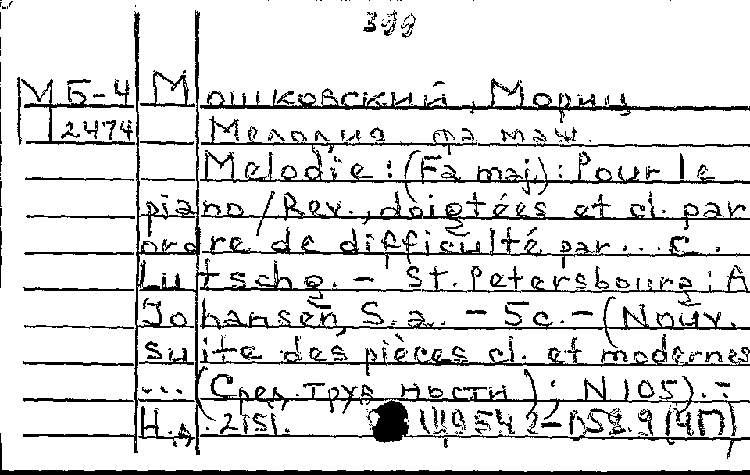 399
М Б-4 Мошковский, Мориц
2474 Мелодия фа маж.
Melodie : (Fa maj.) : Pour le
piano / Rev., doigtées et cl. par
ordre de difficulté par... C.
Lutschg. – St. Petersbourg : A
Johansen, S.a. – 5c. – (Nouv.
suite des pièces cl. et modernes
... (Сред. трудности) ; N 105). –
Н.д. 2151.